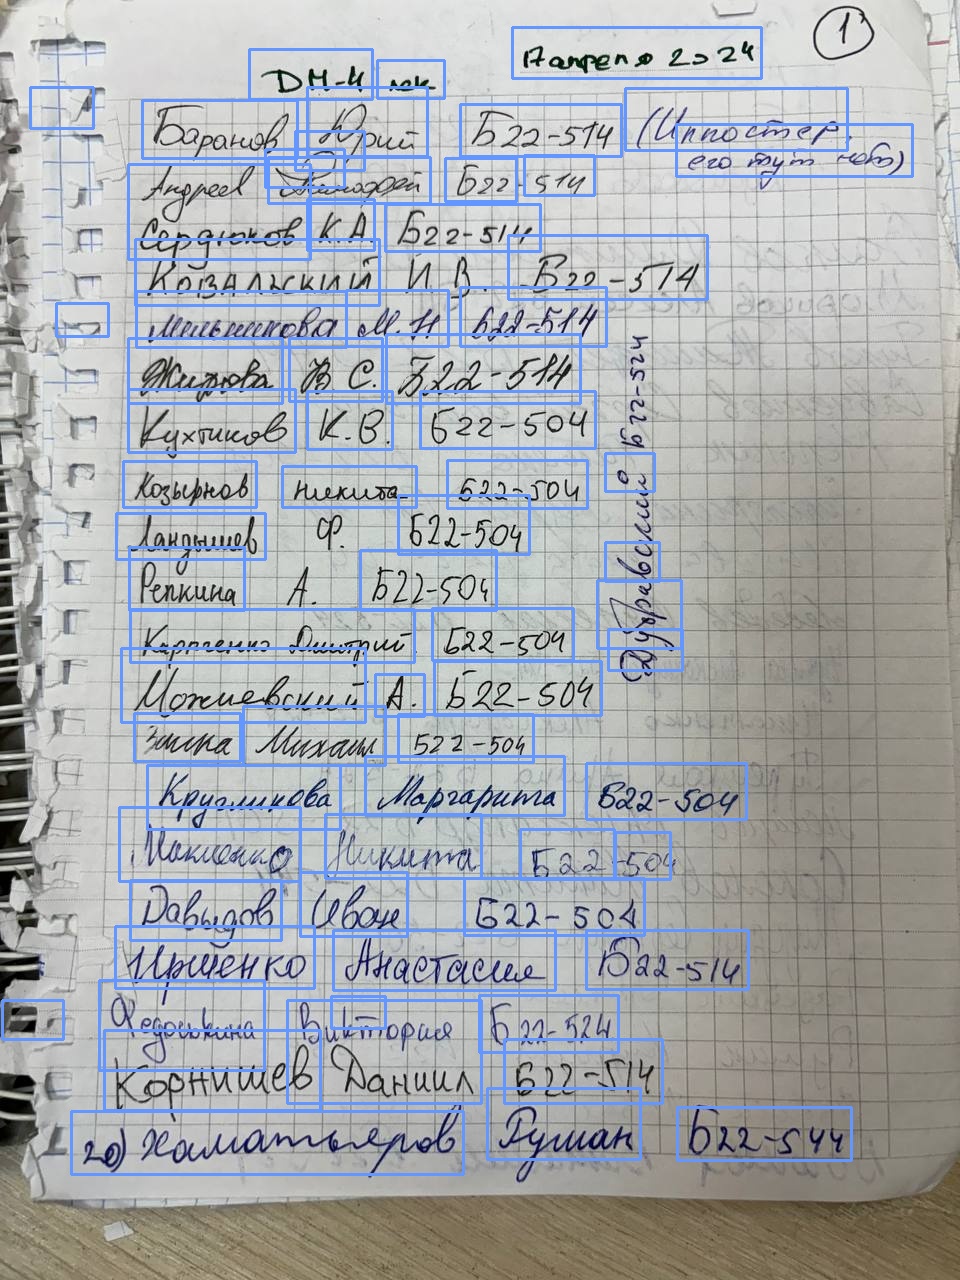 1
ДМ-4 лек. 17 апреля 2024
Баранов Юрий Б22-514 (Иппостер,
его тут нет)
Андреев Тимофей Б22-514
Сердюков К.А. Б22-514
Ковальский И.В. Б22-514
Мельникова М.Н Б22-514
В С. Б22-514
Кухтиков К.В. Б22-504
Козырнов Никита Б22-504
Ландышев Ф. Б22-504
Репкина А. Б22-504
Карпенко Дмитрий Б22-504
Можиевский А. Б22-504
Заика Михаил Б22-504
Кругликова Маргарита Б22-504
Никита Б22-504
Давыдов Иван Б22-504
Иршенко Анастасия Б22-514
Федоськина Виктория Б22-524
Корнишев Даниил Б22-514
20) Хаматьяров Руслан Б22-544
Дубравский Б22-524